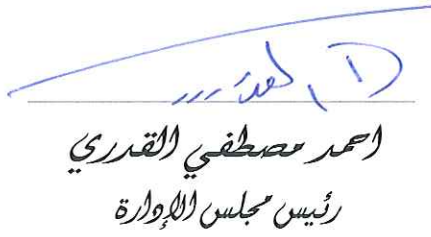 احمد مصطفي القدري
رئيس مجلس الإدارة